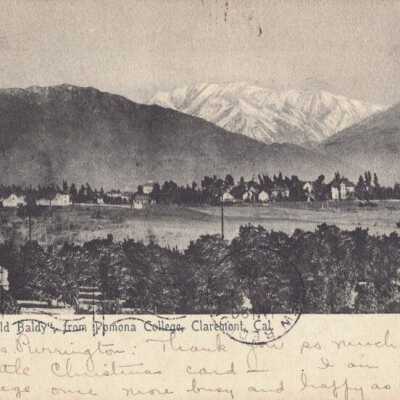 ld Baldy", from Pomona College, Claremont, Cal.
s Purrington: Thank you so much
tle Christmas card — I am
ege once more busy and happy as